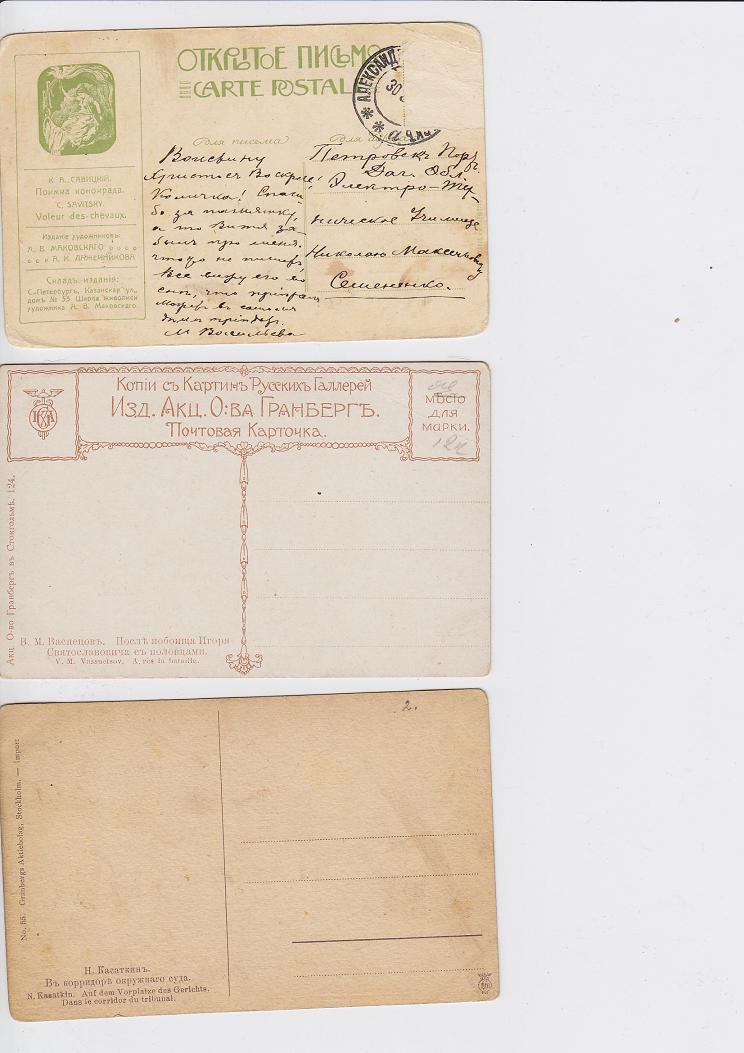 ОТКРЫТОЕ ПИСЬМО
CARTE POSTAL
АЛЕКСАНД
30
для письма
для адреса
К. А. САВИЦКІЙ.
Поимка конокрада.
C. SAVITSKY.
Voleur des-chevaux.
Изданіе художниковъ:
А. В. МАКОВСКАГО
и А. И.
Складъ изданія:
С.-Петербургъ, Казанская ул.,
домъ № 33. Школа живописи
художника А. В. Маковскаго.
Христосъ Воскресе!
Количка! Спаси-
бо за памятку,
а то Витя за-
былъ про меня.
что-то не пишетъ,
Все вижу его во
снѣ, что
М. Васильева
Петровскъ Порт.
Даг. Обл.
Электро-Тех-
ническое Училище
Николаю
Семененко.
Копіи съ Картинъ Русскихъ Галлерей
Изд. Акц. О:ва Гранбергъ.
Почтовая Карточка.
МѢСТО
ДЛЯ
МАРКИ.
Акц. О-во Гранбергъ въ Стокгольмѣ. 124.
В. М. Васнецовъ. Послѣ побоища Игоря
Святославовича съ половцами.
V. M. Vassnetsov. A. rès la bataille.
2.
No. 55. Granbergs Aktiebolag, Stockholm. — Import
Н. Касаткинъ.
Въ корридорѣ окружнаго суда.
N. Kasatkin. Auf dem Vorplatze des Gerichts.
Dans le corridor du tribunal.